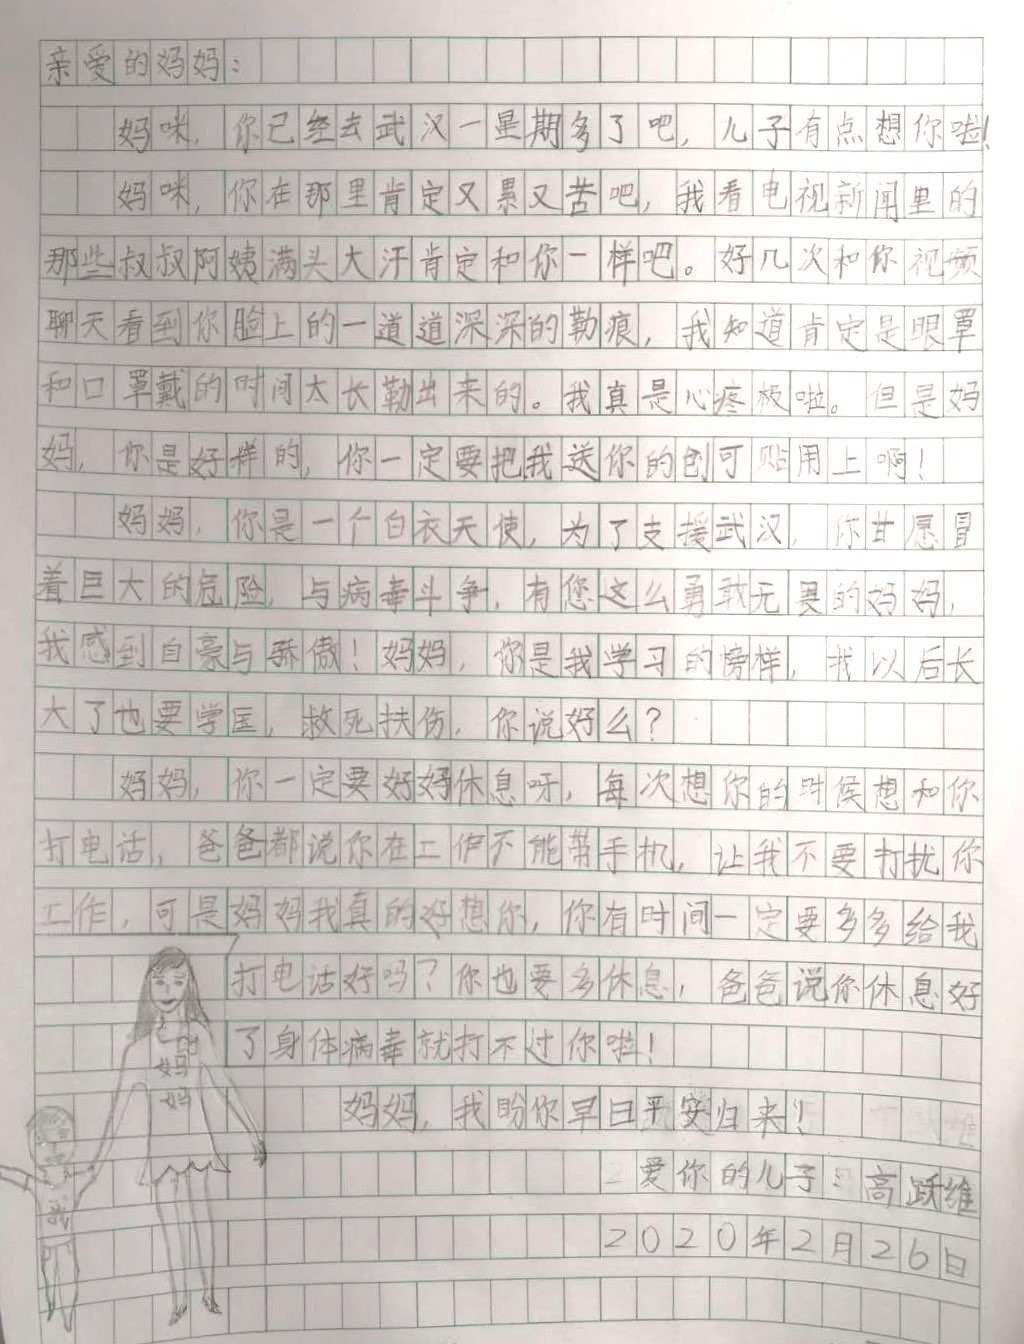 亲爱的妈妈：
妈咪，你已经去武汉一星期多了吧，儿子有点想你啦！
妈咪，你在那里肯定又累又苦吧，我看电视新闻里的
那些叔叔阿姨满头大汗肯定和你一样吧。好几次和你视频
聊天看到你脸上的一道道深深的勒痕，我知道肯定是眼罩
和口罩戴的时间太长勒出来的。我真是心疼极啦。但是妈
妈，你是好样的，你一定要把我送你的创可贴用上啊！
妈妈，你是一个白衣天使，为了支援武汉，你甘愿冒
着巨大的危险，与病毒斗争，有您这么勇敢无畏的妈妈，
我感到自豪与骄傲！妈妈，你是我学习的榜样，我以后长
大了也要学医，救死扶伤，你说好么？
妈妈，你一定要好好休息呀，每次想你的时候想和你
打电话，爸爸都说你在工作不能带手机，让我不要打扰你
工作，可是妈妈我真的好想你，你有时间一定要多多给我
打电话好吗？你也要多休息，爸爸说你休息好
了身体病毒就打不过你啦！
妈妈，我盼你早日平安归来！
爱你的儿子：高跃维
2020年2月26日
妈妈
我